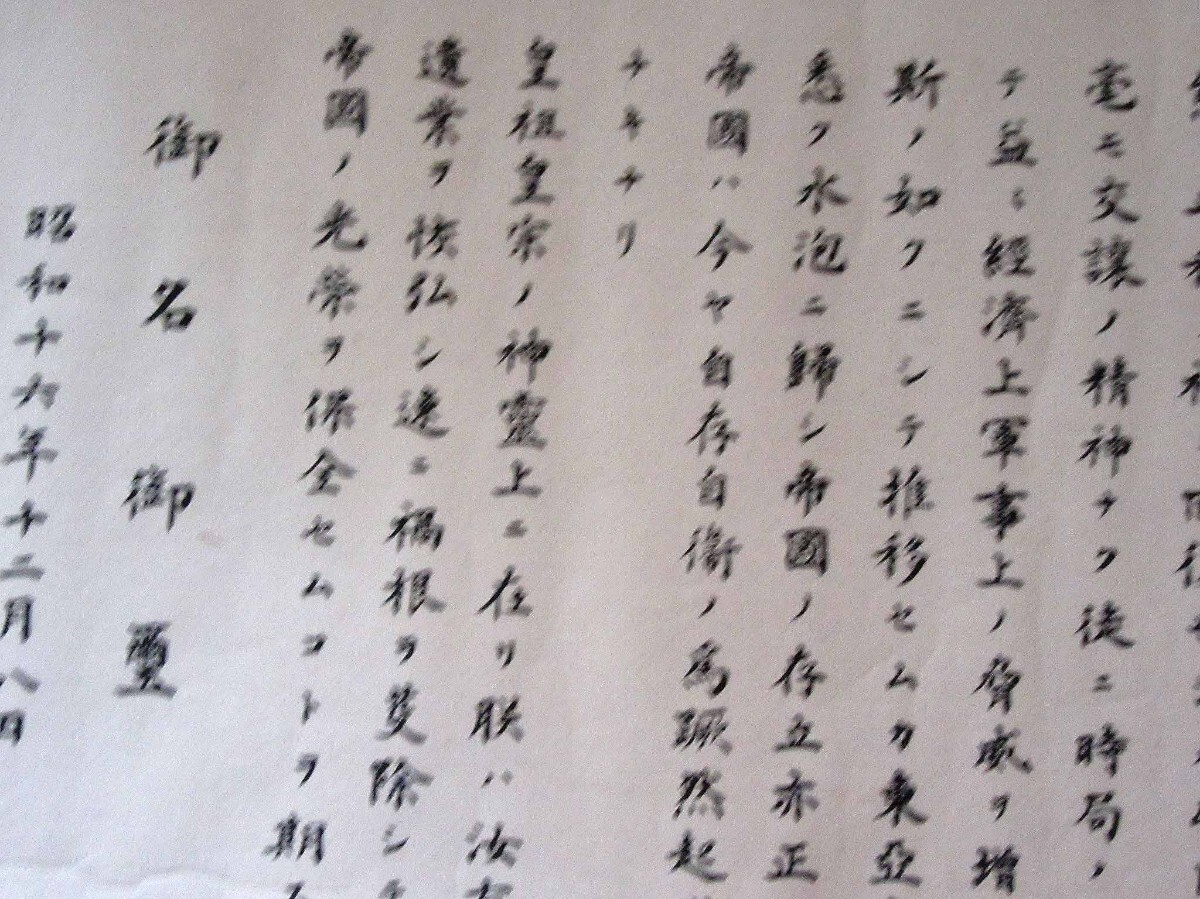 毫モ交讓ノ精神ナク徒ニ時局ノ
テ益〻經濟上軍事上ノ脅威ヲ增
斯ノ如クニシテ推移セムカ東亞
悉ク水泡ニ歸シ帝國ノ存立亦正
帝國ハ今ヤ自存自衞ノ爲蹶然起
ナキナリ
皇祖皇宗ノ神靈上ニ在リ朕ハ汝有
遺業ヲ恢弘シ速ニ禍根ヲ芟除シテ
帝國ノ光榮ヲ保全セムコトヲ期ス
御名御璽
昭和十六年十二月八日